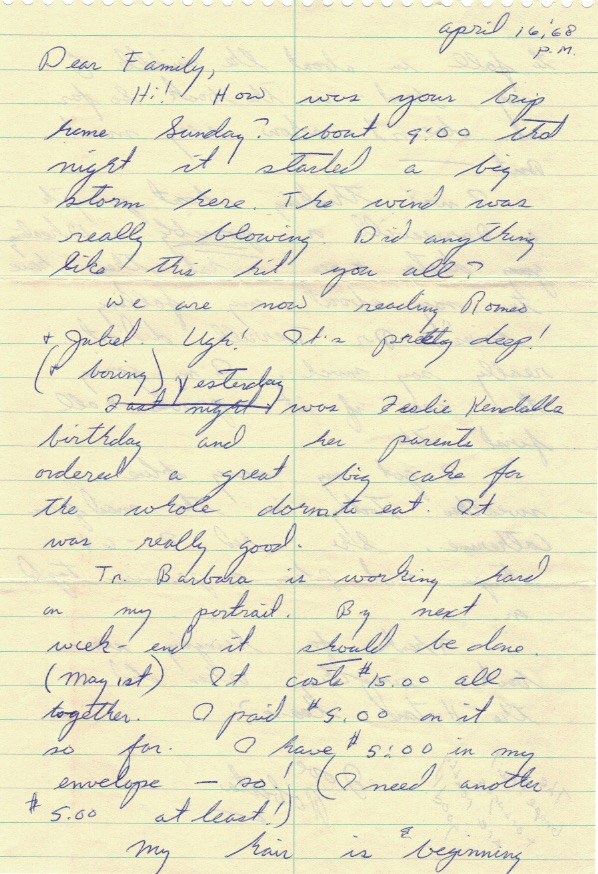 april 16, '68
P.M.
Dear Family,
Hi! How was your trip
home Sunday? about 9:00 that
night it started a big
storm here. The wind was
really blowing. Did anything
like this hit you all?
We are now reading Romeo
+ Juliet. Ugh! It's pretty deep!
(+ boring) yesterday
Last night was Leslie Kendalls
birthday and her parents
ordered a great big cake for
the whole dorm to eat. It
was really good.
Tr. Barbara is working hard
on my portrait. By next
week-end it should be done.
(May 1st) It costs $15.00 all-
together. I paid $5.00 on it
so far. I have $5:00 in my
envelope — so! (I need another
$5.00 at least!)
My hair is beginning